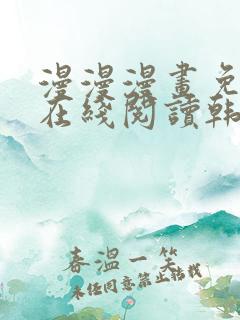 漫漫漫畫免
在綫閱讀韩
春溫一笑
未经同意禁止转载